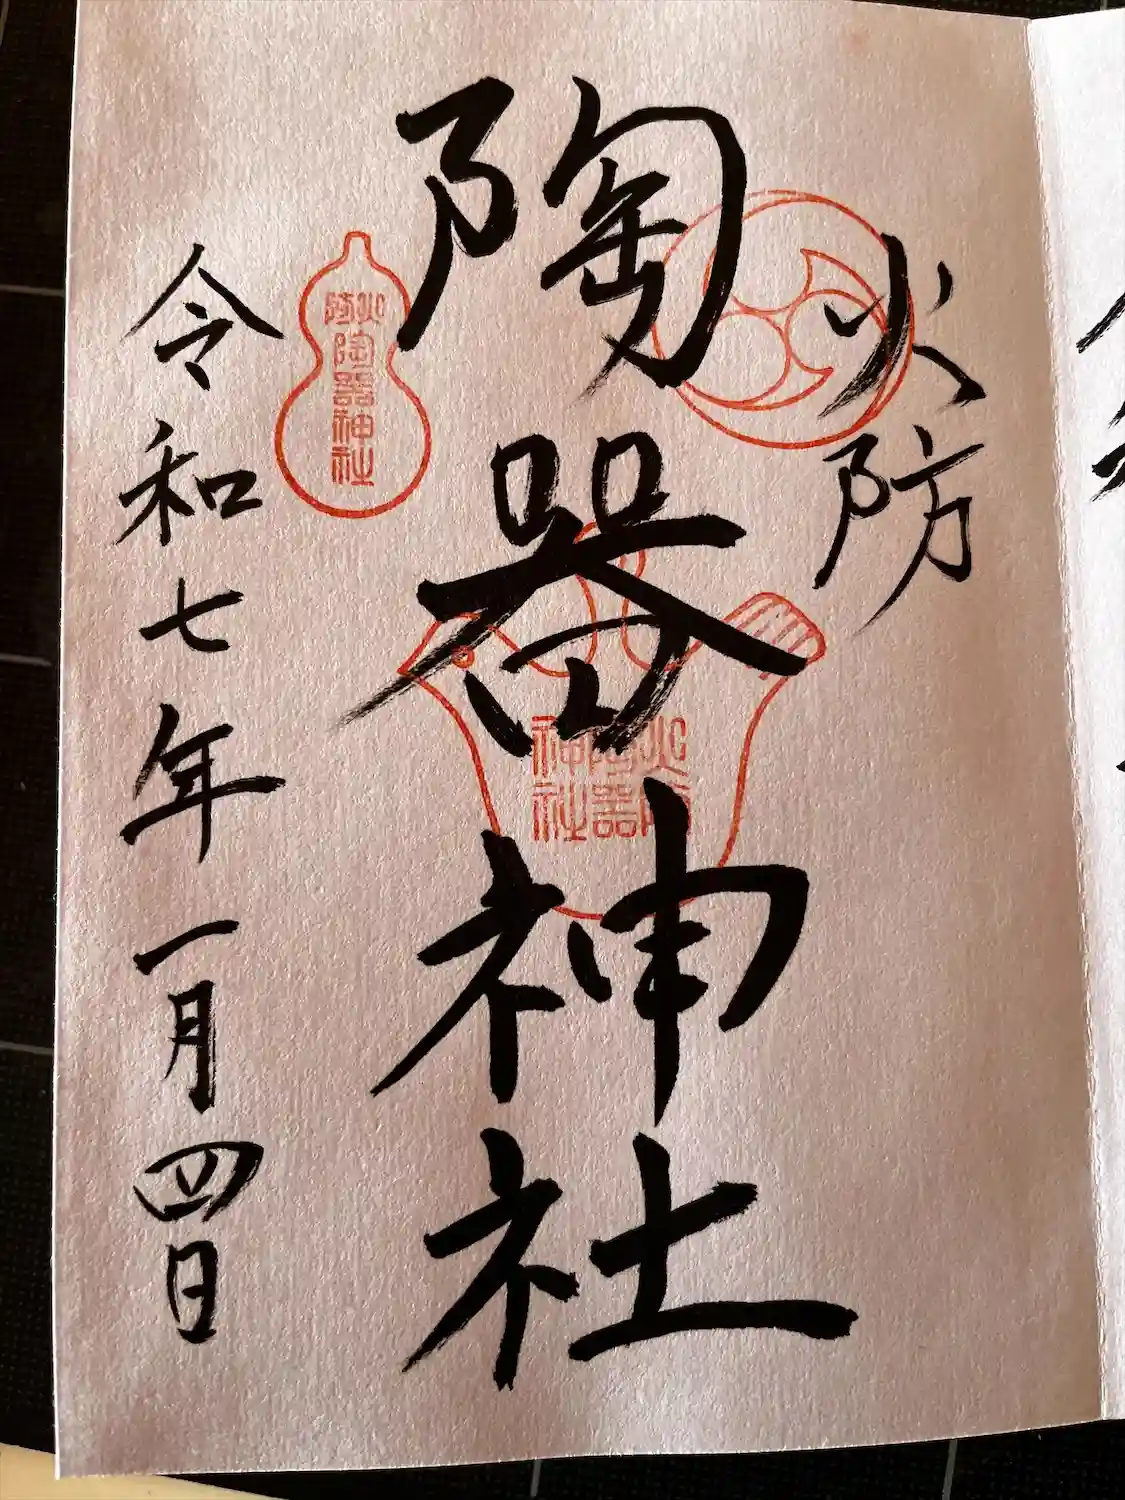 火防
陶器神社
令和七年一月四日
火防陶器神社
火防陶器神社